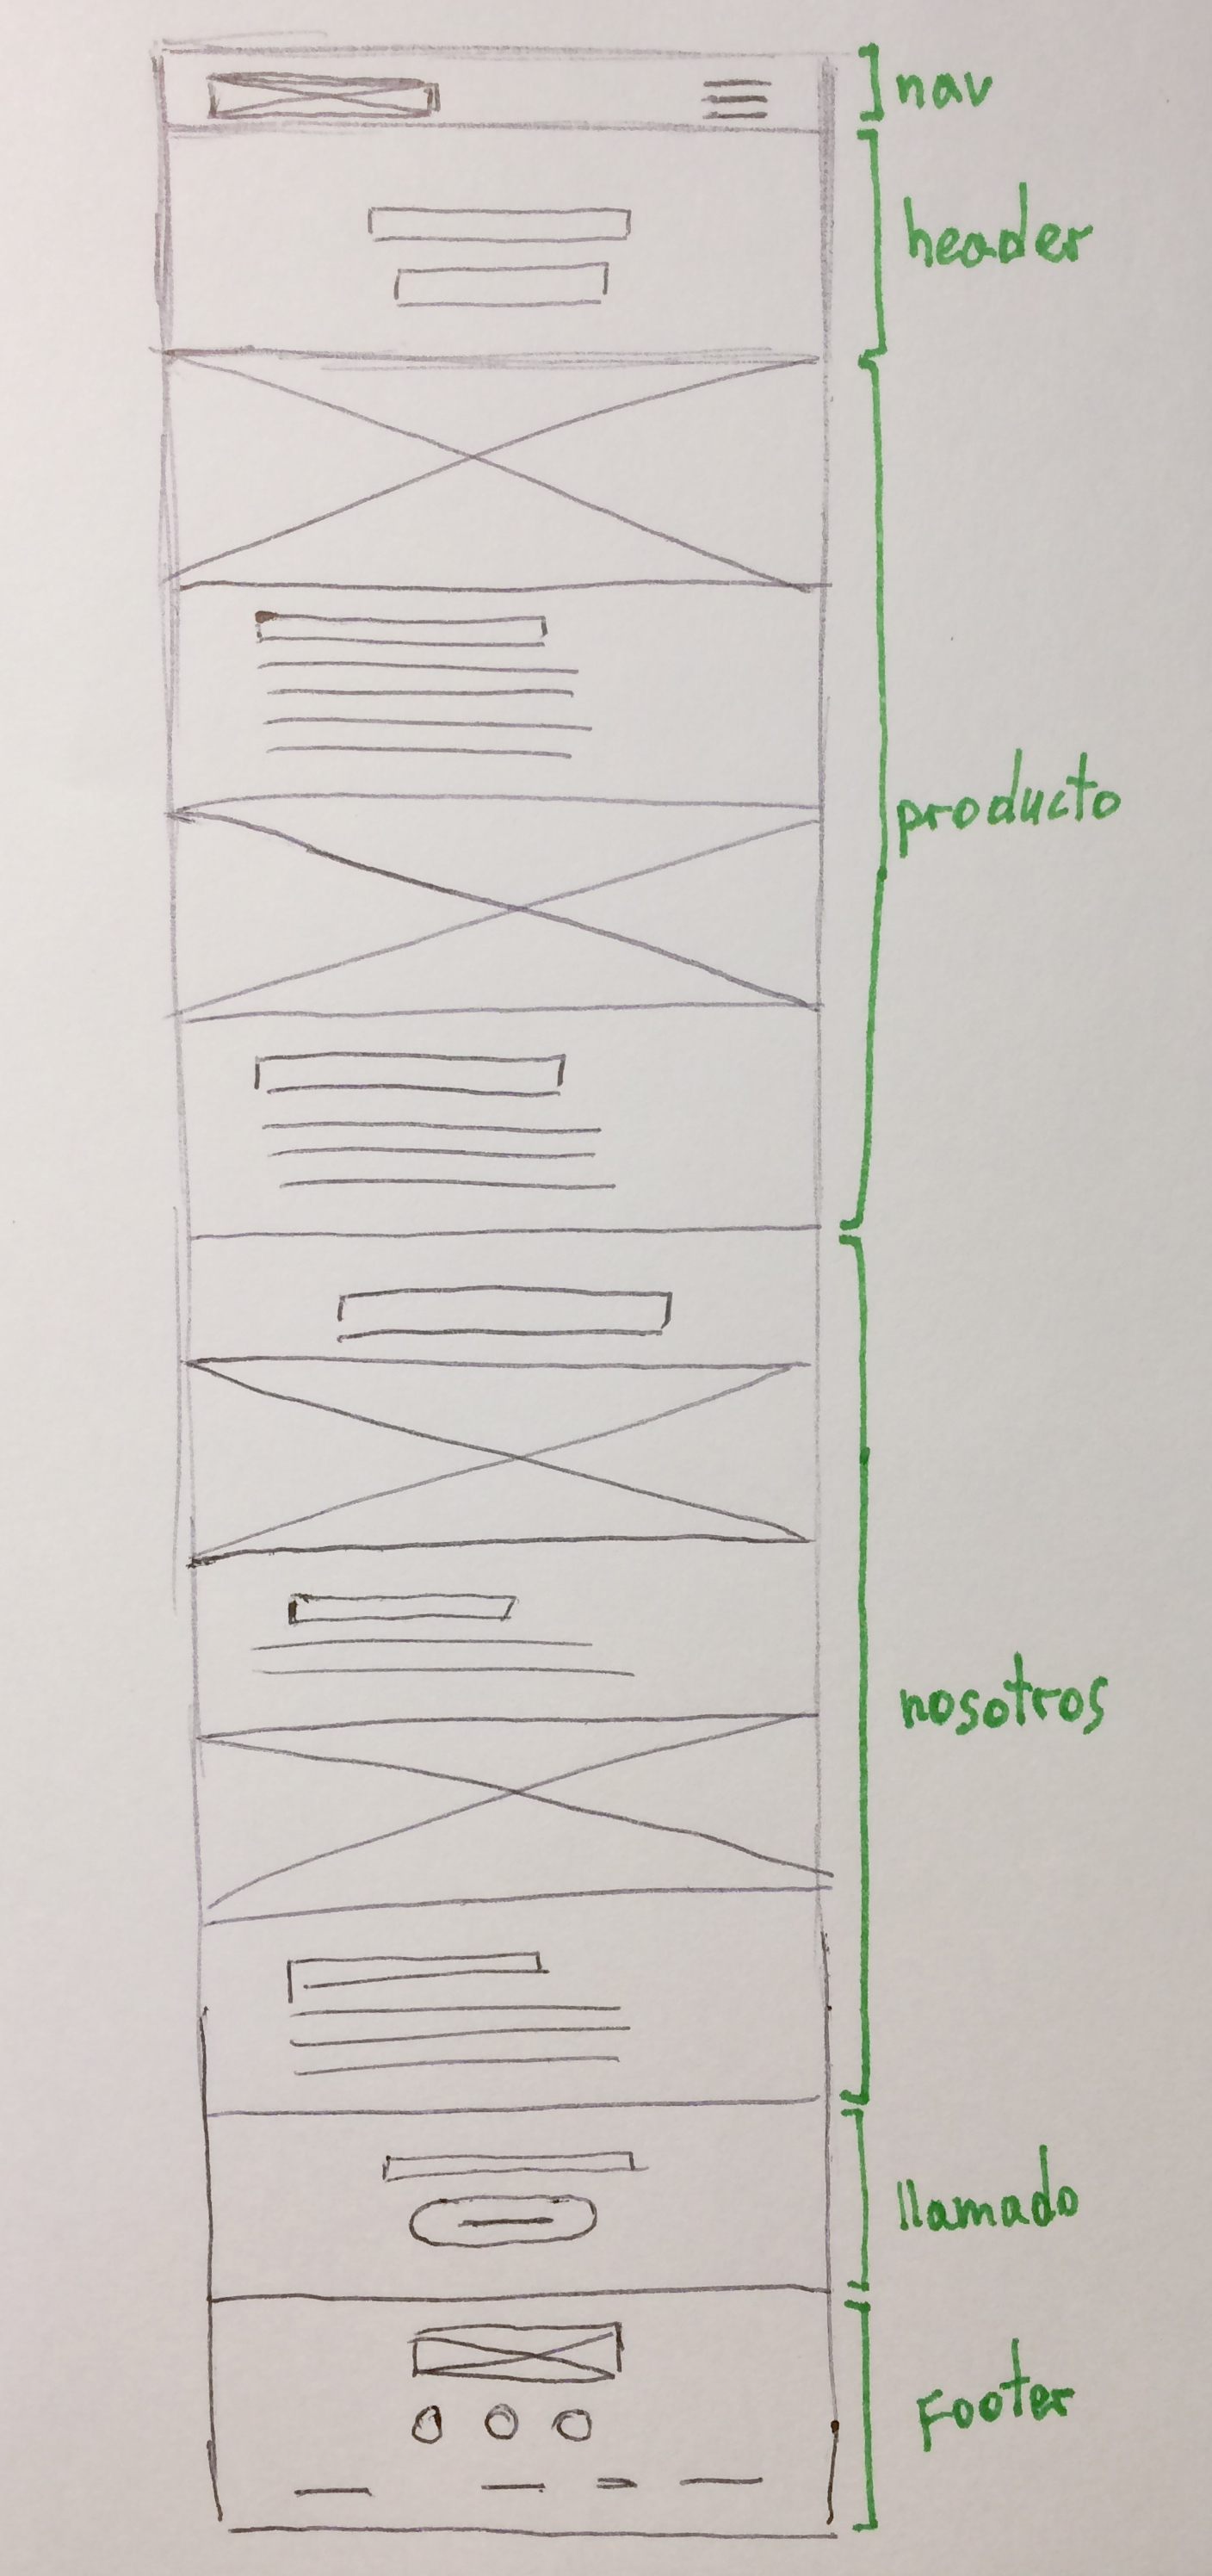 nav
header
producto
nosotros
llamado
Footer